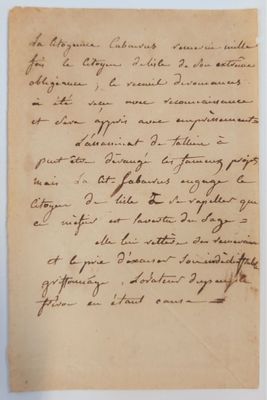 La Citoyenne Cabarus remercie mille
fois le Citoyen delisle de son extrême
obligeance, le recueil de romances
à été reçu avec reconnaissance
et sera appris avec empressement.
L'assassinat de tallien à
peut être dérangé les fameux projets
mais la Cit Cabarus engage le
Citoyen de lisle de se rapeller que
ce n'est est la vertu du Sage =
elle lui réitère ses remerciemens
et le prie d'excuser son
griffonnage, l'orateur du peuple
fréron en étant cause =